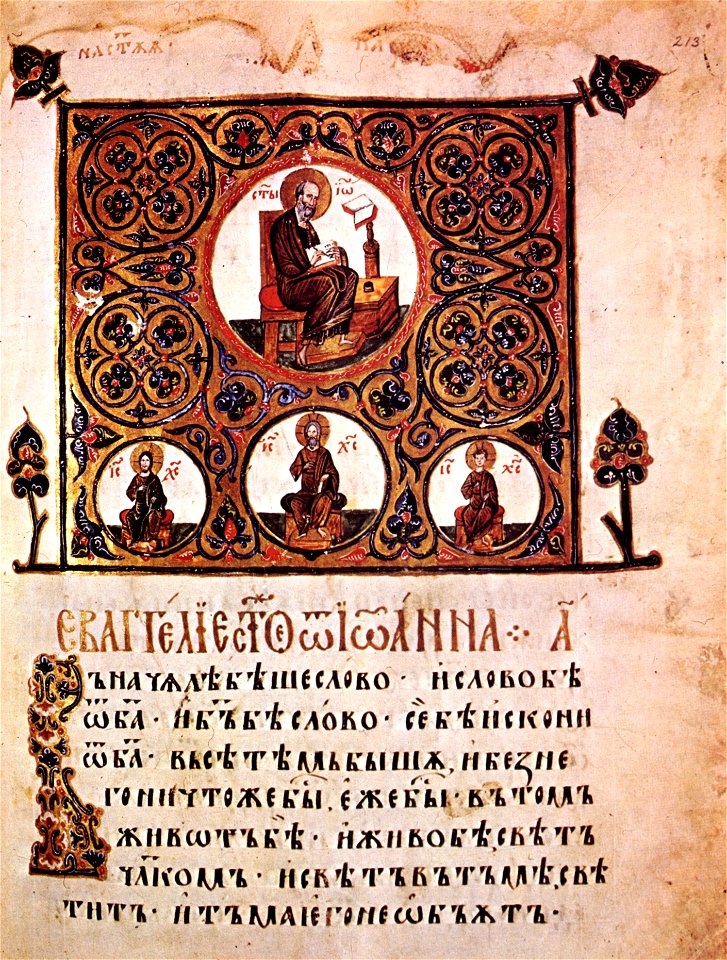 НАСТѪѪ·
213
СТЫ ІѠ
ІС ХС
ІС ХС
ІС ХС
ЕВАГГЕ́ЛІЕ СТОЕ Ѿ ІѠА́ННА ⁘ А҃
Въ начѧлѣ бѣше слово · и слово бѣ
ѿ б҃а · и б҃ъ бѣ слово · се бѣ искони
ѿ б҃а · вьсѣ тѣмь бышѧ, и без не
го ничтоже бы̑, еже бы̑ · въ томъ
живѡтъ бѣ · и живо бѣ, свѣтъ
чл҃комъ · и свѣтъ въ тъмѣ, свѣ
тить · и тъма іего не ѡбъѧтъ ·